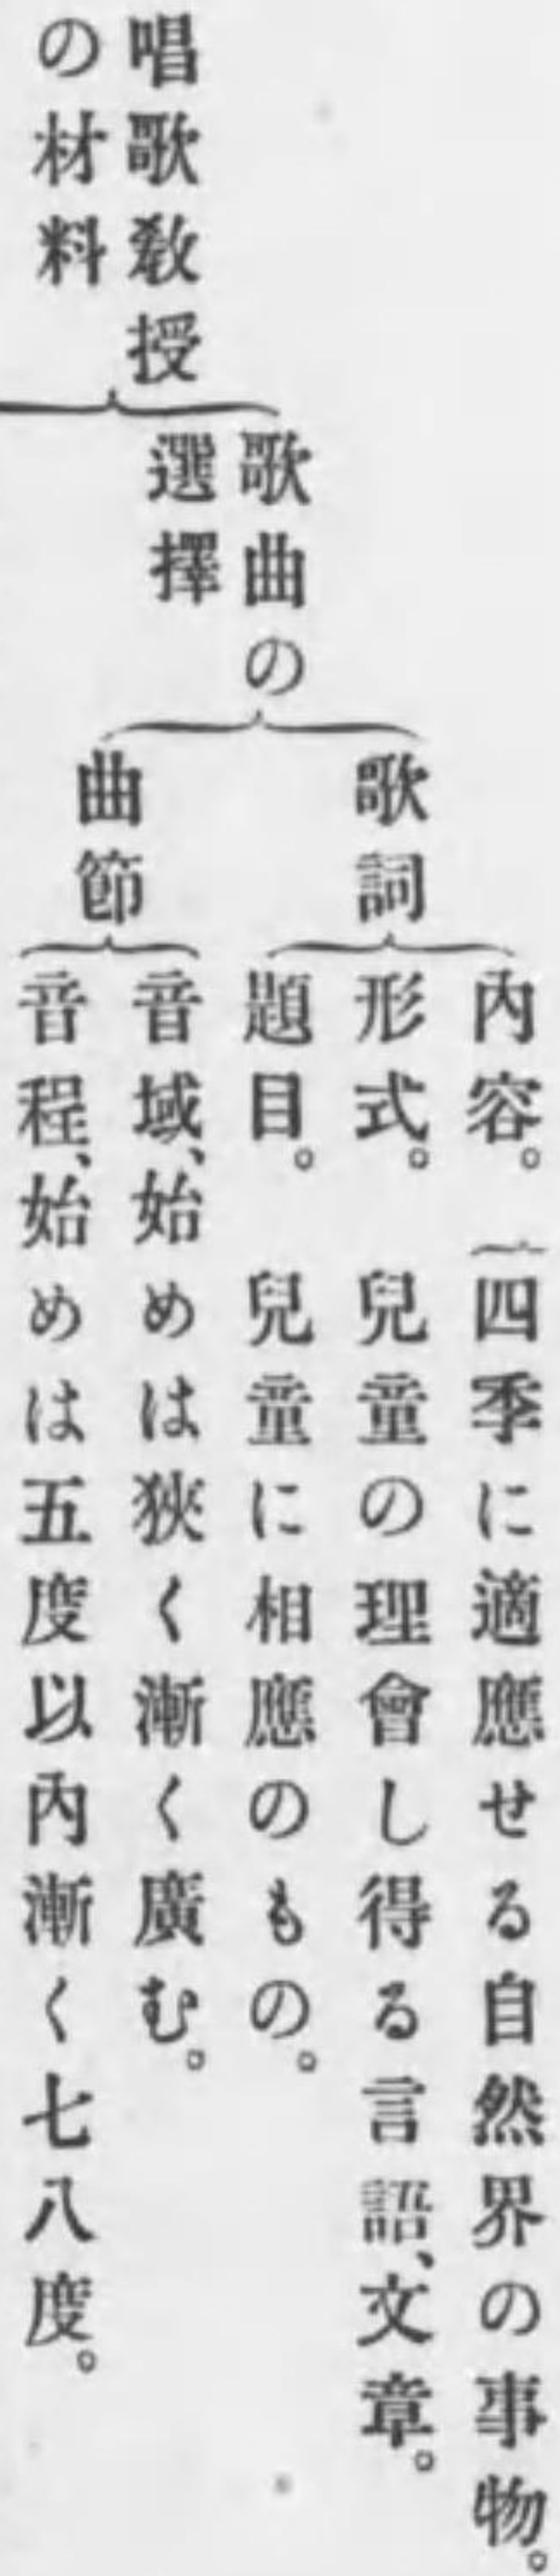 唱歌敎授
の材料
歌曲の
選擇
歌詞
內容。
四季に適應せる自然界の事物。
形式。 兒童の理會し得る言語、文章。
題目。 兒童に相應のもの。
曲節
音域、始めは狹く漸く廣む。
音程、始めは五度以內漸く七八度。